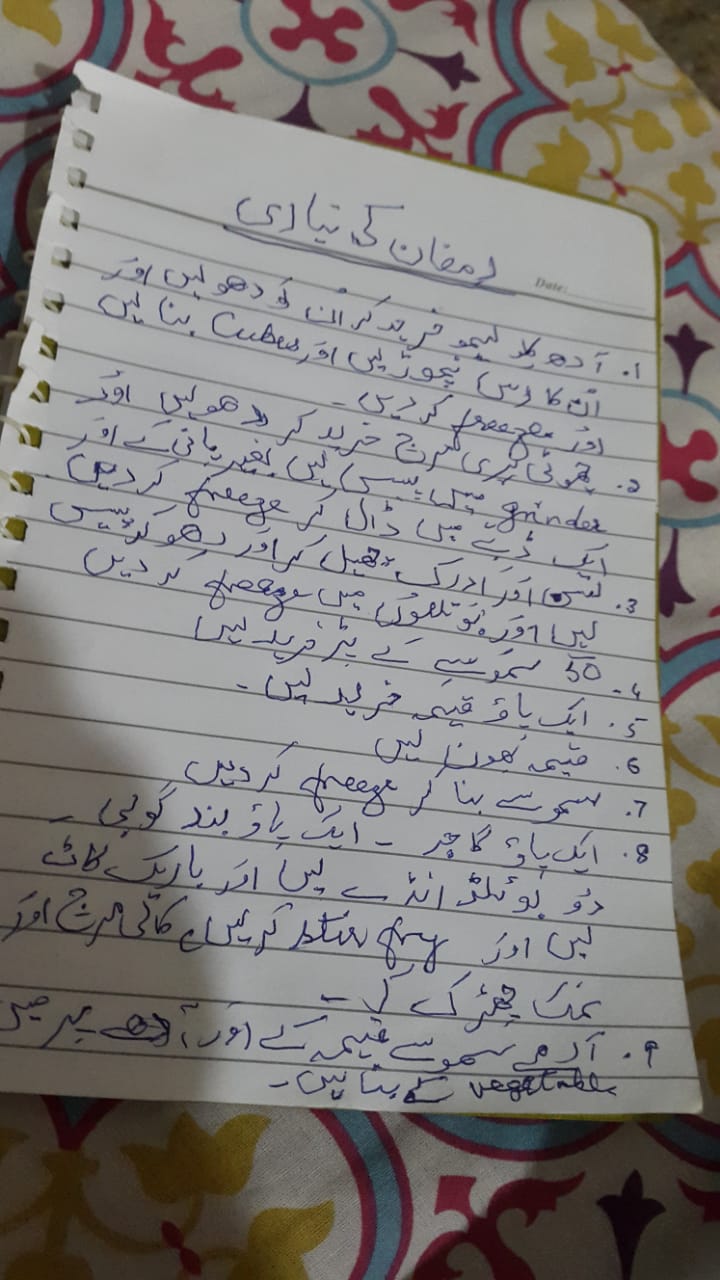 رمضان کی تیاری
Date:
۱. آدھ کلو لیمو خرید کر ان کو دھولیں اور
ان کا رس نچوڑیں اور Cubes بنا لیں
اور freeze کردیں۔
۲. چھوٹی ہری مرچ خرید کر دھولیں اور
grinder میں پیس لیں بغیر پانی کے اور
ایک ڈبے میں ڈال کر freeze کردیں
۳. لہسن اور ادرک چھیل کر اور دھو کر پیس
لیں اور بوتلوں میں freeze کردیں
۴. 50 سموسے کے پٹر خرید لیں
۵. ایک پاؤ قیمہ خرید لیں۔
۶. قیمہ بھون لیں
۷. سموسے بنا کر freeze کردیں
۸. ایک پاؤ گاجر ۔ ایک پاؤ بند گوبی ۔
دو بوئلڈ انڈے لیں اور باریک کاٹ
لیں اور stir fry کرلیں، کالی مرچ اور
نمک چھڑک کر ۔
۹. آدھے سموسے قیمہ کے اور میں
vegetable کے بنا لیں۔